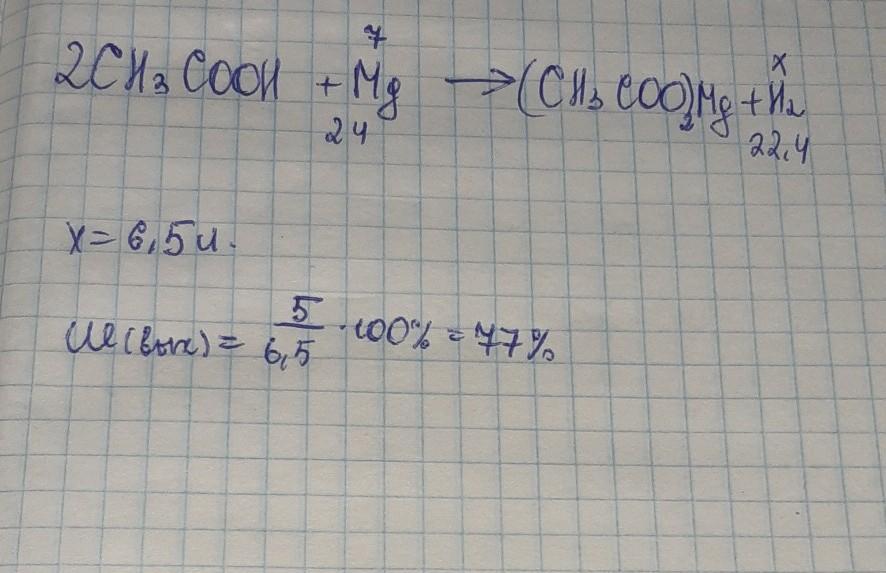 7 x
2CH₃COOH + Mg → (CH₃COO)₂Mg + H₂
24 22,4
x = 6,5 л.
ω(вых) = 5/6,5 · 100% = 77%